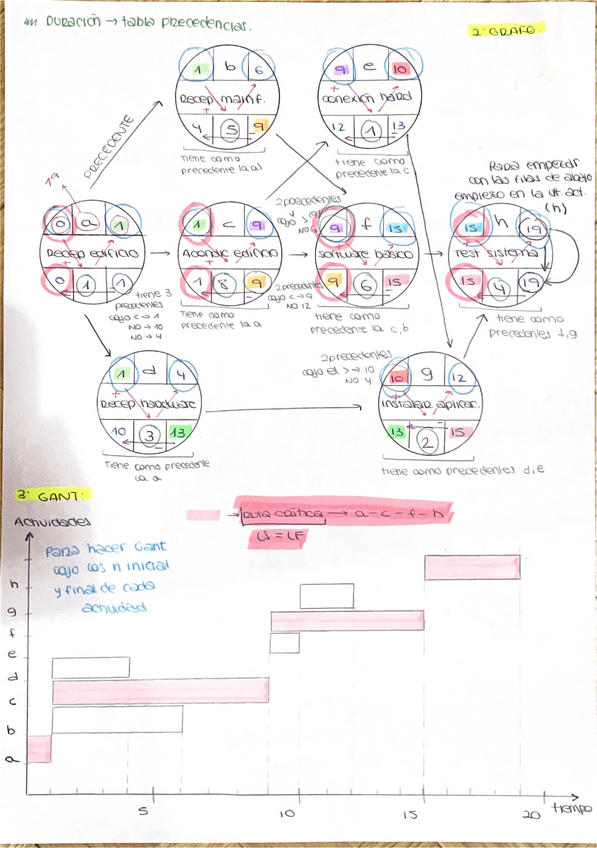 DURACIÓN → tabla precedencias.
2: GRAFO.
1 b 6
Recep mainf.
4 5 9
Tiene como
precedente la a)
9 e 10
conexión hard
12 1 13
tiene como
precedente la c
PRECEDENTE
1º
Para empezar
con las filas de abajo
empiezo en la últ act.
(h)
0 a 1
Recep edificio
0 1 1
tiene 3
precedentes
cojo c → 1
NO → 10
NO → 4
1 c 9
Acondic edificio
1 8 9
Tiene como
precedente la a
2 precedentes
NO 6
9 f 15
software básico
9 6 15
2 precedentes
cojo c → 9
NO 12
tiene como
precedente la c, b
15 h 19
Test sistema
15 4 19
tiene como
precedentes f, g
1 d 4
Recep hardware
10 3 13
Tiene como precedente
la a
2 precedentes
cojo el > → 10
NO 4
10 g 12
Instalar aplicac.
13 2 15
tiene como precedentes d, e
3: GANT:
→ Ruta crítica → a - c - f - h
Actividades
Para hacer Gant
cojo los n inicial
y final de cada
actividad
h
g
f
e
d
c
b
a
5 10 15 20 tiempo